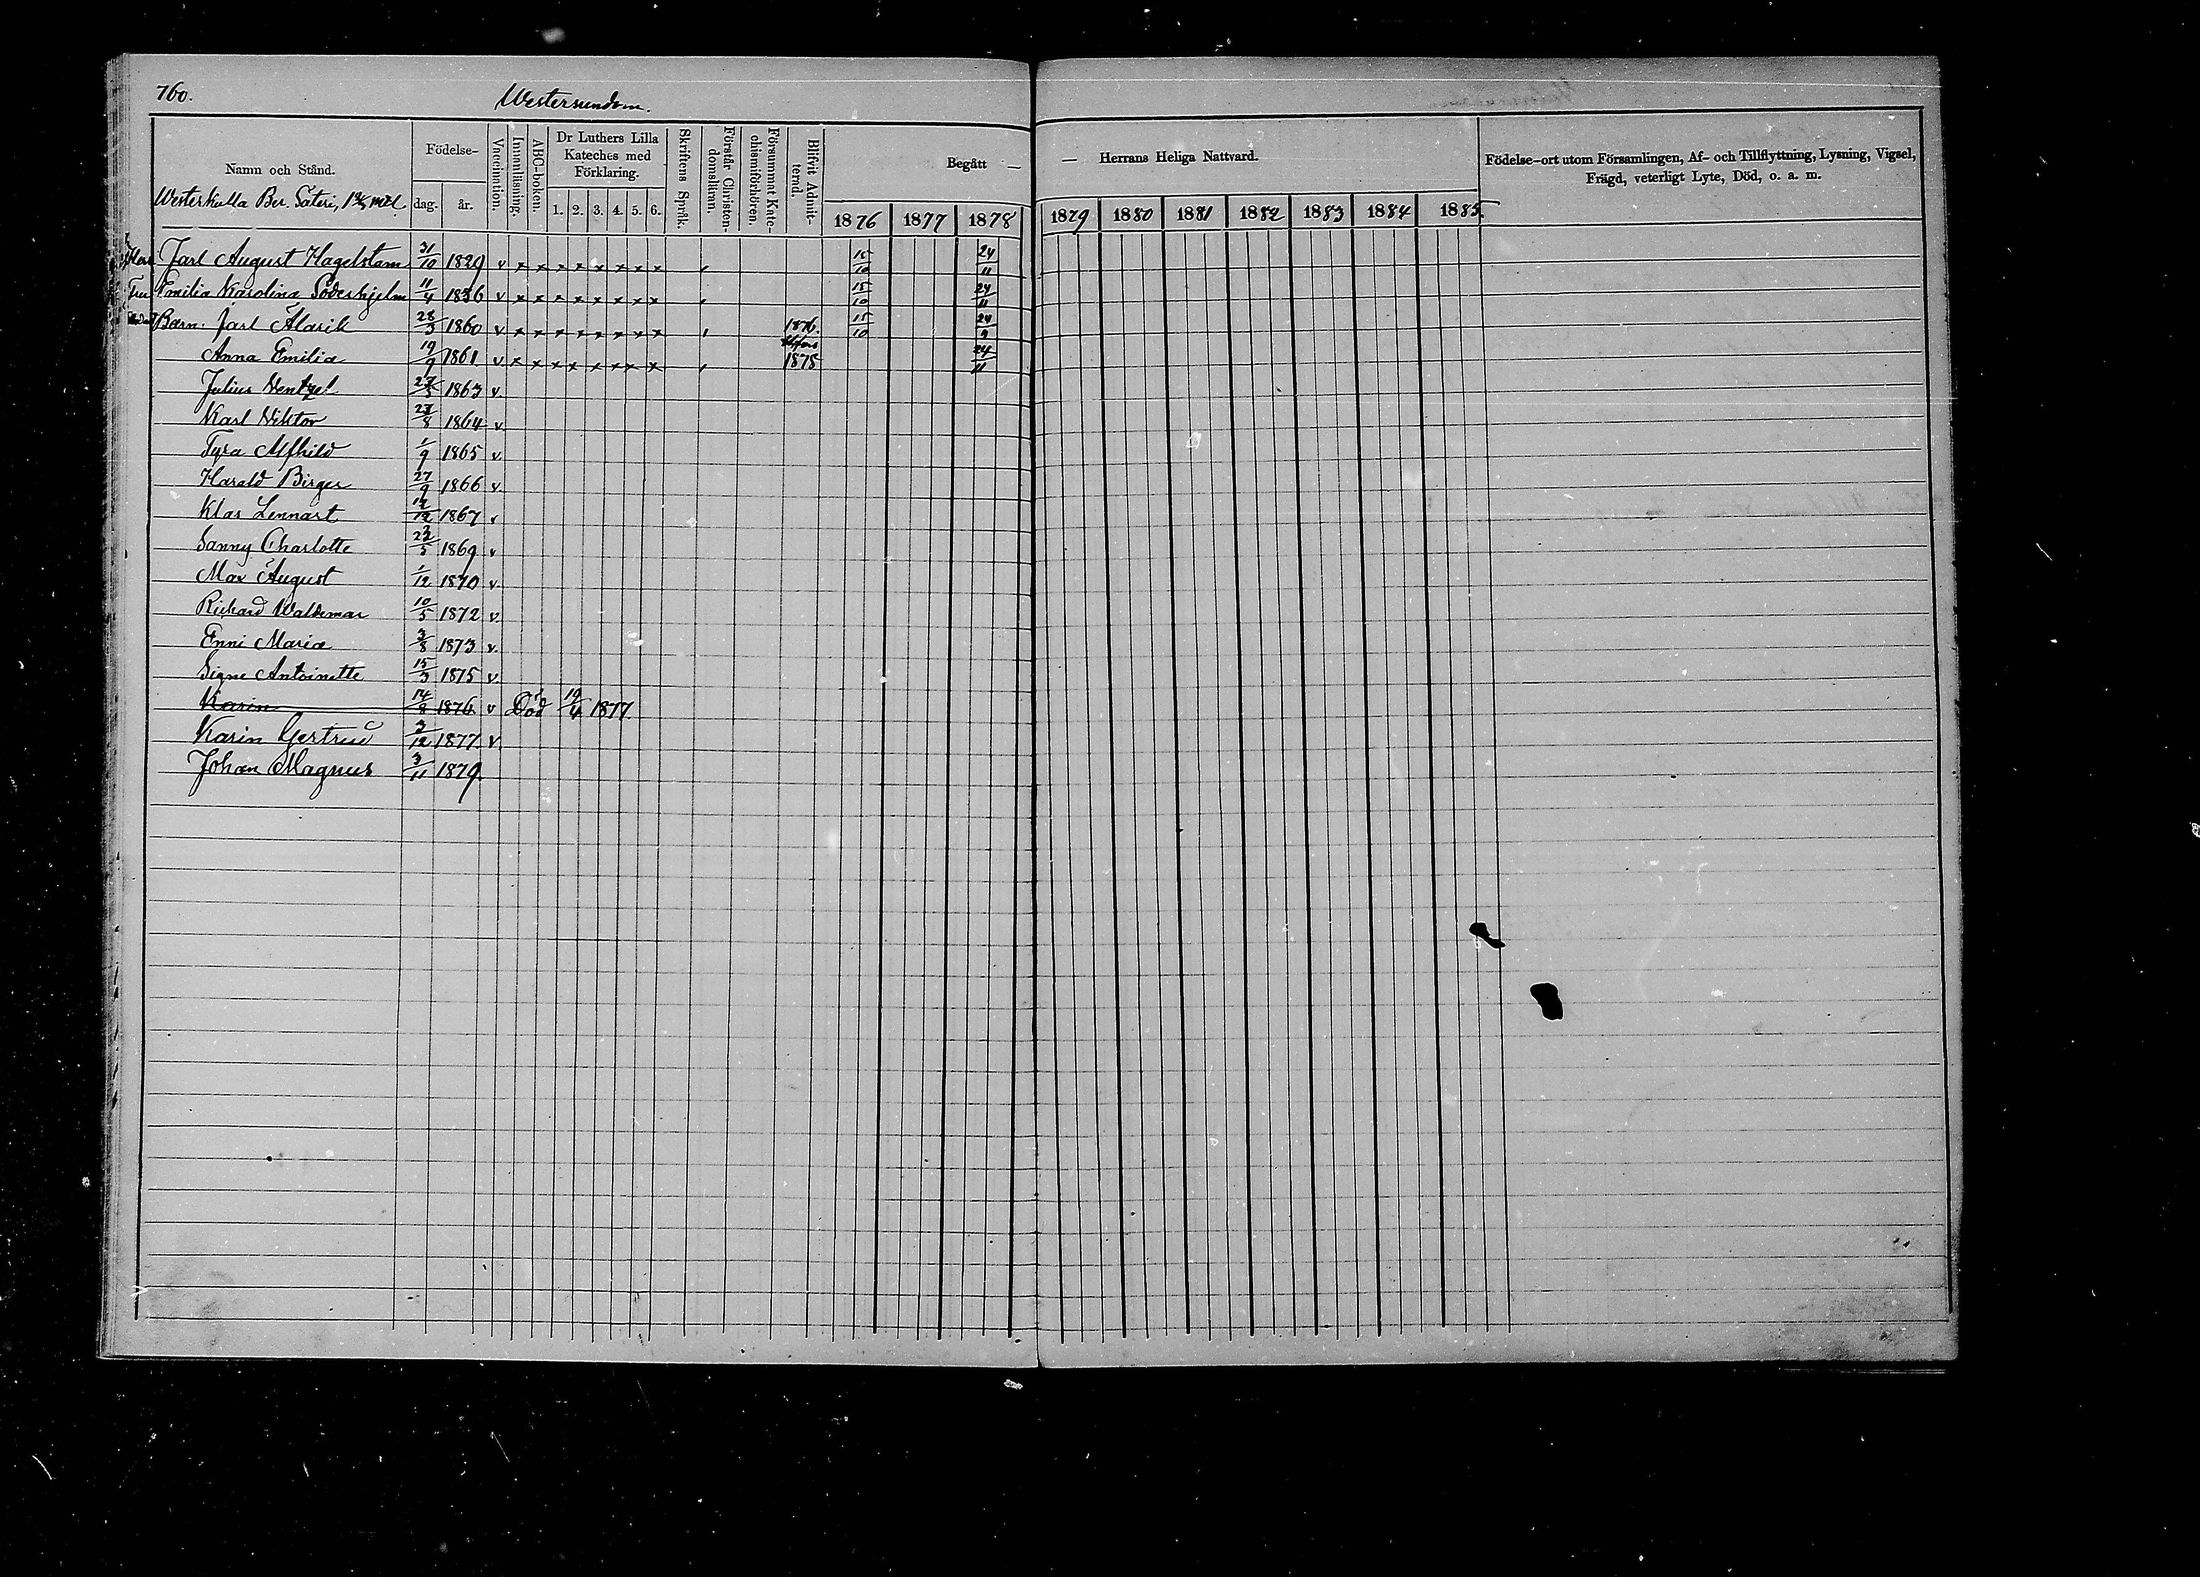 760.
Westersundom.
Namn och Stånd.
Westerkulla Ber. Säteri, mtl.
Födelse-
dag.
år.
Vaccination.
Innanläsning.
ABC-boken.
Dr Luthers Lilla
Kateches med
Förklaring.
1. 2. 3. 4. 5. 6.
Skriftens Språk.
Förstår Christen-
domslämn.
Försummat Kate-
chismiförhören.
Blifvit Admit-
ternd.
Begått —
1876 1877 1878
— Herrans Heliga Nattvard.
1879 1880 1881 1882 1883 1884 1885
Födelse-ort utom Församlingen, Af- och Tillflyttning, Lysning, Vigsel,
Frägd, veterligt Lyte, Död, o. a. m.
Jarl August Hagelstam 31/10 1829 v x x x x x x x x 15/10 24/11
Fru Emilia Karolina Söderhjelm 11/4 1836 v x x x x x x x x 15/10 24/11
Barn: Jarl Alarik 28/3 1860 v x x x x x x x x 1876. 15/10 24/9
Anna Emilia 19/9 1861 v x x x x x x x x 1875 24/11
Julius Wentzel 1863 v.
Karl Viktor 1864 v.
Tyra Alfhild 1/9 1865 v.
Harald Birger 27/9 1866 v.
Klas Lennart 1867 v
Sanny Charlotte 1869 v
Max August 1/12 1870 v.
Richard Waldemar 10/5 1872 v.
Enni Maria 3/8 1873 v.
Signe Antoinette 15/3 1875 v.
Karin 14/8 1876 v Död 19/4 1877.
Karin Gertrud 3/12 1877 v
Johan Magnus 3/11 1879.